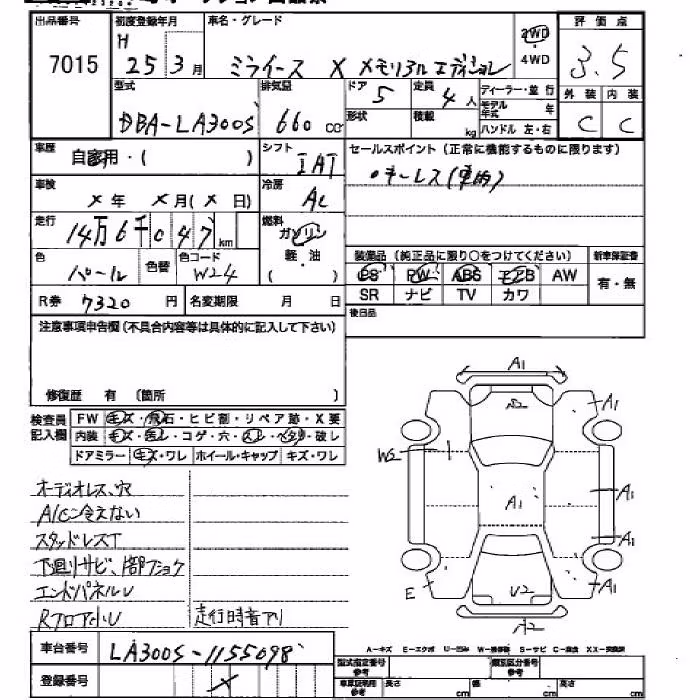 出品番号 初度登録年月 車名・グレード 評価点
7015 H 25年 3月 ミライース X メモリアル エディション 2WD ・ 4WD 3.5
型式 排気量 ドア 5 定員 4人 ディーラー・並行 外装 内装
DBA-LA300S 660cc 形状 積載 kg モデル年式 年 C C
ハンドル 左・右
車歴 自家用・( ) シフト IAT セールスポイント(正常に機能するものに限ります)
車検 ×年 ×月(×日) 冷房 AC ・キーレス(車内)
走行 14万6千047km 燃料 ガソリン 軽・油 ( )
色 パール 色替 色コード W24
装備品(純正品に限り○をつけてください) 新車保証書
PS PW ABS エアB AW 有・無
SR ナビ TV カワ
R券 7320円 名変期限 月 日
後日品
注意事項申告欄(不具合内容等は具体的に記入して下さい)
修復歴 有 〔箇所 〕
検査員記入欄 FW キズ・飛石・ヒビ割・リペア跡・X要
内装 キズ・汚レ・コゲ・穴・スレ・ヘタリ・破レ
ドアミラー キズ・ワレ ホイール・キャップ キズ・ワレ
オーディオレス、穴
A/C冷えない
スタッドレスT
下廻りサビ、1部フショク
エンドパネルU
Rフロア小U 走行時音アリ
A1
A2 A1
W2
A1 A1
A1
E U2 A1
A2
車台番号 LA300S-1155098
登録番号 ×
A-キズ E-エクボ U-凹み W-補修跡 S-サビ C-腐食 XX-交換済
型式指定番号 参考 類別区分番号 参考
車庫証明用 参考 長さ cm 幅 cm 高さ cm